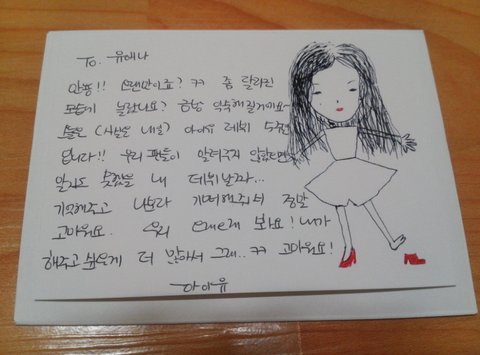 To. 유애나
안뇽!! 오랜만이죠? ㅋㅋ 좀 달라진
모습에 놀랐나요? 금방 익숙해질거에요~
오늘은 (사실은 내일) 아이유 데뷔 5주년
입니다!! 우리 팬들이 알려주지 않았으면
알지도 못했을 내 데뷔날짜...
기억해주고 나보다 기뻐해줘서 정말
고마워요. 우리 오래오래 봐요! 내가
해주고 싶은게 더 많아서 그래.. ㅋㅋ 고마워요!
아이유